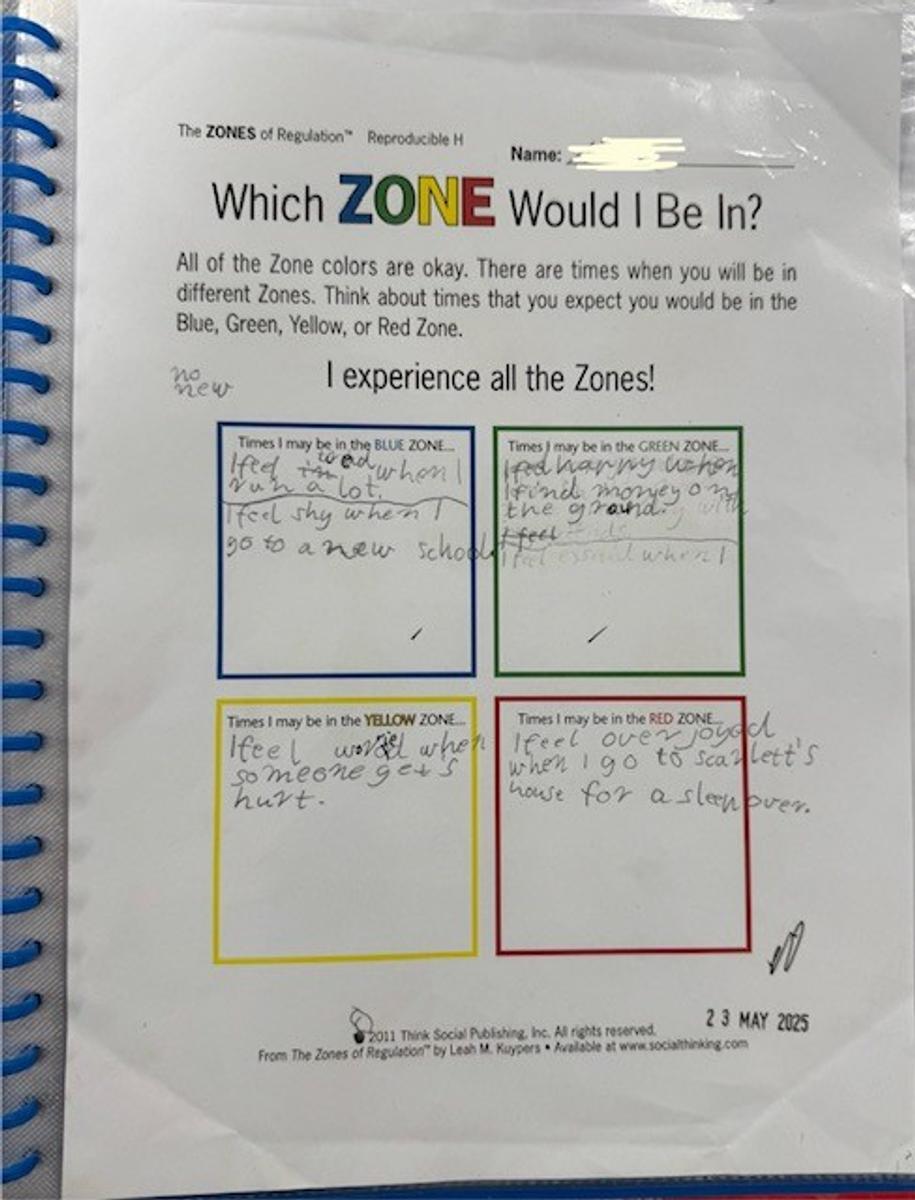 The ZONES of Regulation™ Reproducible H
Name:
Which ZONE Would I Be In?
All of the Zone colors are okay. There are times when you will be in
different Zones. Think about times that you expect you would be in the
Blue, Green, Yellow, or Red Zone.
no
new
I experience all the Zones!
Times I may be in the BLUE ZONE...
I feel when I
run a lot.
I feel shy when I
go to a new school
Times I may be in the GREEN ZONE...
I feel happy when
I find money on
the ground. with
I feel
I feel when I
Times I may be in the YELLOW ZONE...
I feel when
someone gets
hurt.
Times I may be in the RED ZONE...
I feel over joyed
when I go to scarlett's
house for a sleepover.
23 MAY 2025
©2011 Think Social Publishing, Inc. All rights reserved.
From The Zones of Regulation™ by Leah M. Kuypers • Available at www.socialthinking.com